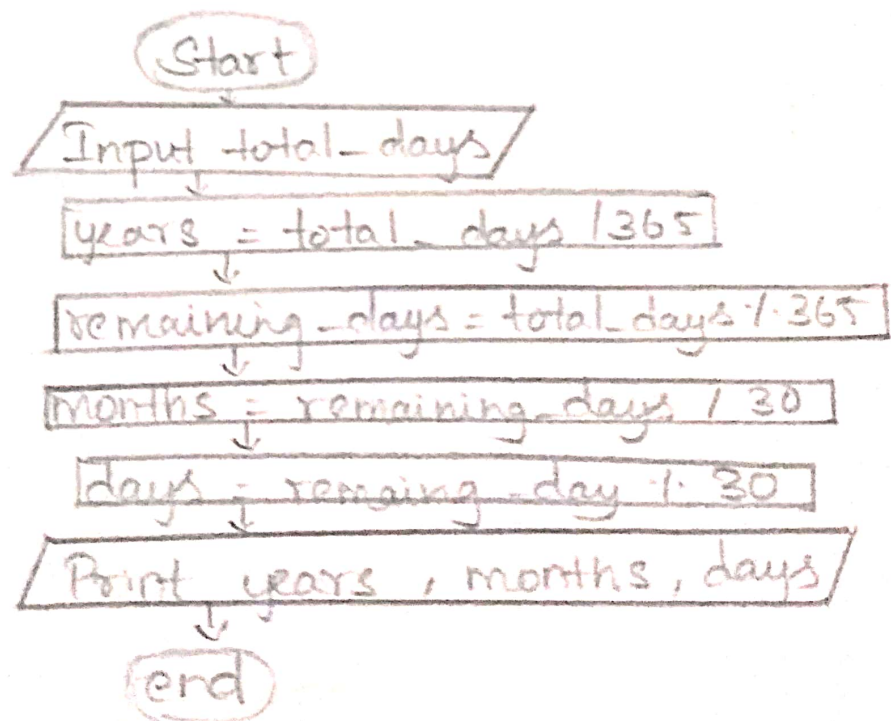 Start
Input total_days
years = total_days / 365
remaining_days = total_days % 365
months = remaining_days / 30
days = remaing_day % 30
Print years, months, days
end